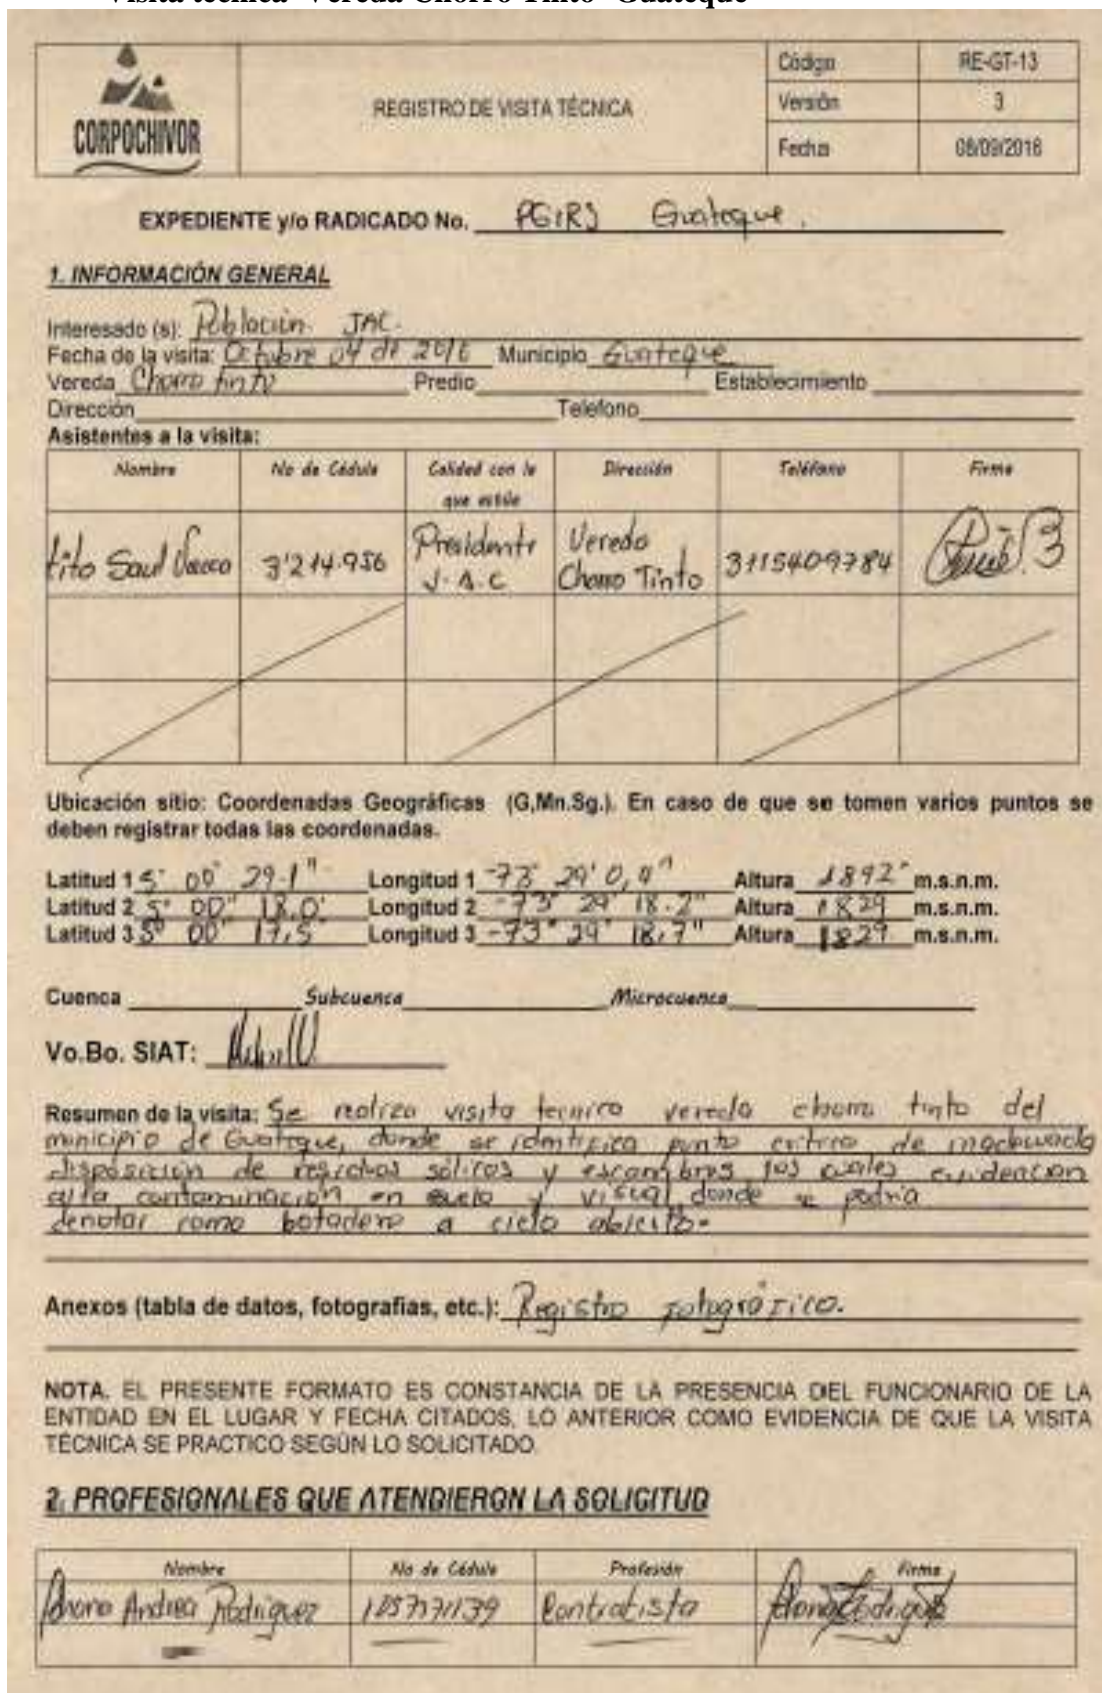 Visita técnica Vereda Chorro Tinto Guateque
CORPOCHIVOR
REGISTRO DE VISITA TÉCNICA
Código RE-GT-13
Versión 3
Fecha 08/09/2016
EXPEDIENTE y/o RADICADO No. PGIRS Guateque.
1. INFORMACIÓN GENERAL
Interesado (s): Población JAC.
Fecha de la visita: Octubre 04 de 2016 Municipio Guateque
Vereda Chorro tinto Predio Establecimiento
Dirección Telefono
Asistentes a la visita:
Nombre No de Cédula Calidad con la que actúe Dirección Teléfono Firma
tito Saul 3'214.956 Presidente J.A.C Vereda Chorro Tinto 3115409784
Ubicación sitio: Coordenadas Geográficas (G,Mn.Sg.). En caso de que se tomen varios puntos se
deben registrar todas las coordenadas.
Latitud 1 5° 00' 29.1" Longitud 1 -73° 29' 0,4" Altura 1892 m.s.n.m.
Latitud 2 5° 00' 18.0' Longitud 2 -73° 29' 18.2" Altura 1829 m.s.n.m.
Latitud 3 5° 00' 17,5" Longitud 3 -73° 29' 18,7" Altura 1829 m.s.n.m.
Cuenca Subcuenca Microcuenca
Vo.Bo. SIAT:
Resumen de la visita: Se realiza visita tecnica vereda chorro tinto del
municipio de Guateque, donde se identifica punto critico de inadecuada
disposición de residuos sólidos y escombros los cuales evidencian
alta contaminación en suelo y visual donde se podria
denotar como botadero a cielo abierto.
Anexos (tabla de datos, fotografias, etc.): Registro fotográfico.
NOTA. EL PRESENTE FORMATO ES CONSTANCIA DE LA PRESENCIA DEL FUNCIONARIO DE LA
ENTIDAD EN EL LUGAR Y FECHA CITADOS, LO ANTERIOR COMO EVIDENCIA DE QUE LA VISITA
TÉCNICA SE PRACTICO SEGÚN LO SOLICITADO.
2. PROFESIONALES QUE ATENDIERON LA SOLICITUD
Nombre No de Cédula Profesión Firma
Andrea Rodriguez Contratista